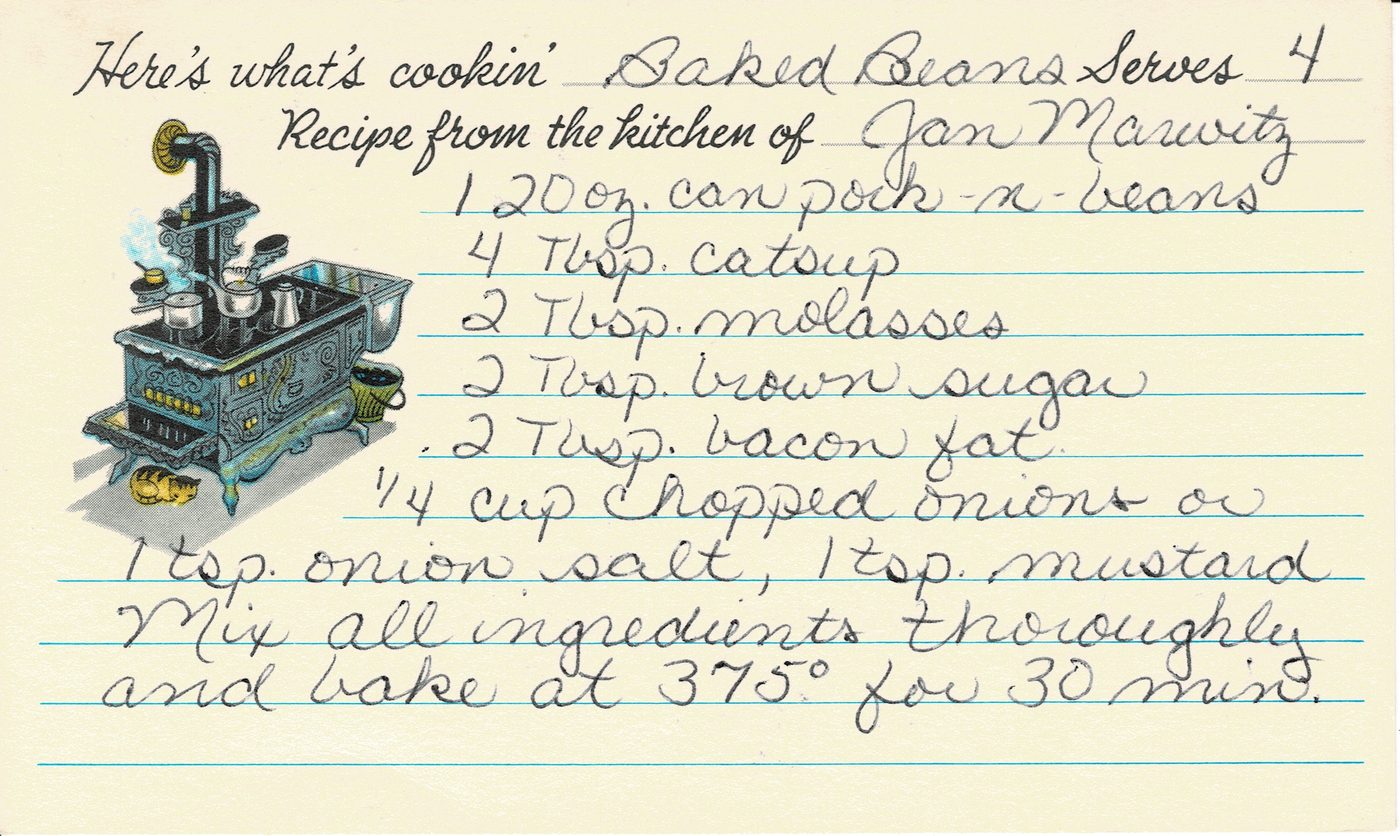 Here's what's cookin' Baked Beans Serves 4
Recipe from the kitchen of Jan Marwitz
1 20 oz. can pork-n-beans
4 Tbsp. catsup
2 Tbsp. molasses
2 Tbsp. brown sugar
2 Tbsp. bacon fat
1/4 cup chopped onions or
1 tsp. onion salt, 1 tsp. mustard
Mix all ingredients thoroughly
and bake at 375° for 30 min.